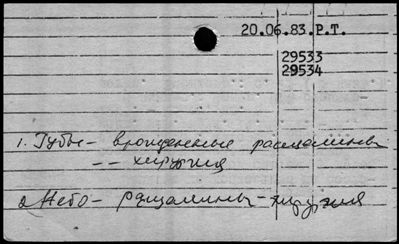 20.06.83.P.T.
29533
29534
1. Губы – врожденные расщелины
– – хирургия
2. Небо – расщелины – хирургия